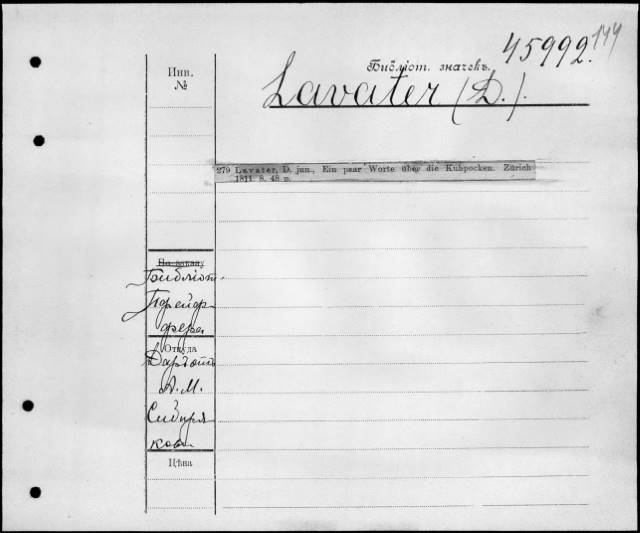 45992. 144
Инв.
№
Библіот. значекъ.
Lavater (D.).
279 Lavater, D. jun., Ein paar Worte über die Kuhpocken. Zürich
1811. 8. 48 p.
По заказу
Библіот.
Пфейф-
фера
Откуда
Даръ отъ
А. М.
Сибиря-
кова
Цѣна